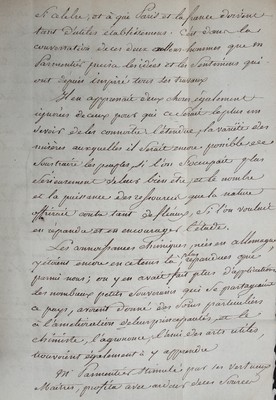 Si célèbre, et à qui Paris et la france doivent
tant d'utiles établissemens. C'est dans la
conversation de ces deux hommes que
Parmentier puisa les idées et les Sentimens qui
ont depuis inspiré tous ses travaux
Il en apprenait deux choses, également
ignorées de ceux pour qui ce serait le plus un
devoir de les connaître l'étendue, la variété des
misères auxquelles il serait encore possible de
Soustraire les peuples Si l'on s'occupait plus
sérieusement de leur bien être et le nombre
et la puissance des ressources que la nature
offrirait contre tant de fléaux, Si l'on voulait
en répandre et en encourager l'étude.
Les connaissances chimiques, nées en allemagne
y étaient encore en ce tems là plus répandues que
parmi nous; on y en avait fait plus d'applications
les nombreux petits Souverains qui Se partageaient
ce pays, avaient donné des Soins particuliers
à l'amélioration de leurs principautés, et le
chimiste, l'agronome, l'ami des arts utiles,
trouvoient également à y apprendre
Mr Parmentier Stimulé par ses vertueux
Maîtres, profita avec ardeur de ces Sources